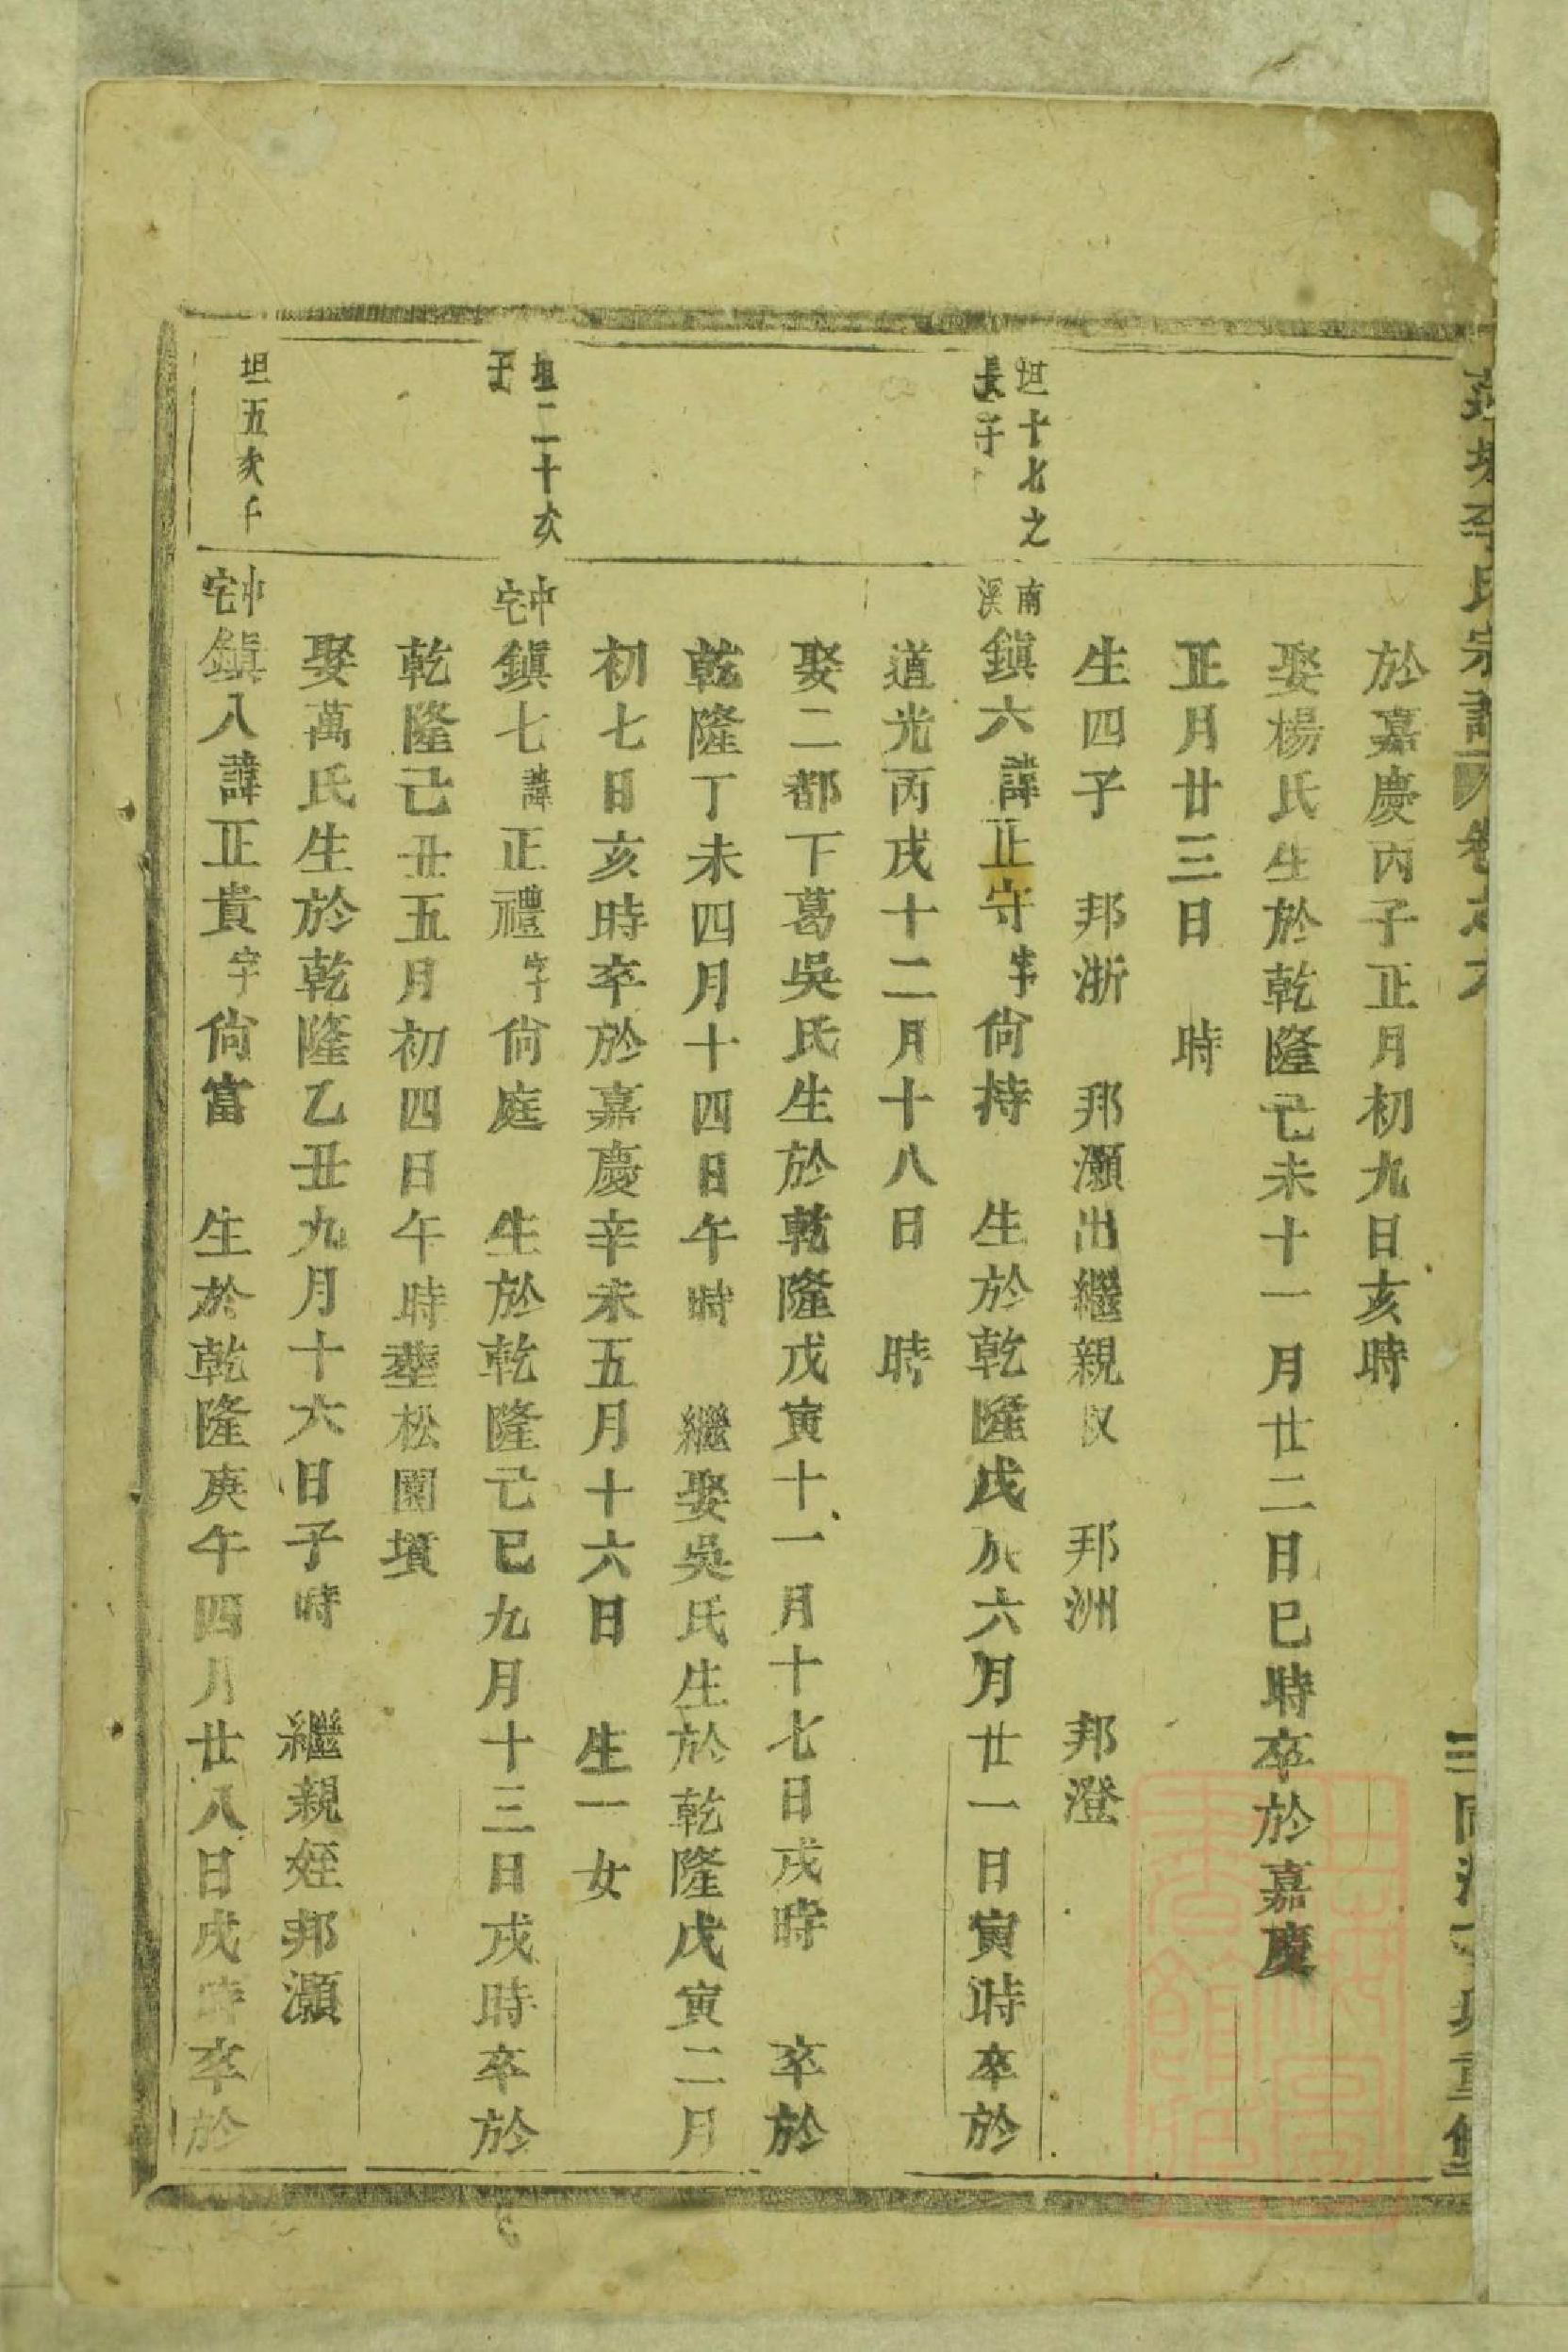 李氏宗譜 卷之六
於嘉慶丙子正月初九日亥時
娶楊氏生於乾隆己未十一月廿二日巳時卒於嘉慶
正月廿三日 時
生四子 邦浙 邦灝出繼親叔 邦洲 邦澄
坦十七之長子
南溪 鎮六諱正守字尙持 生於乾隆戊辰六月廿一日寅時卒於
道光丙戌十二月十八日 時
娶二都下葛吳氏生於乾隆戊寅十一月十七日戌時 卒於
乾隆丁未四月十四日午時 繼娶吳氏生於乾隆戊寅二月
初七日亥時卒於嘉慶辛未五月十六日 生一女
坦二十次子
中宅 鎮七諱正禮字尙庭 生於乾隆己巳九月十三日戌時卒於
乾隆己丑五月初四日午時塟松園墳
娶萬氏生於乾隆乙丑九月十六日子時 繼親姪邦灝
坦五次子
中宅 鎮八諱正貴字尙富 生於乾隆庚午四月廿八日戌時卒於